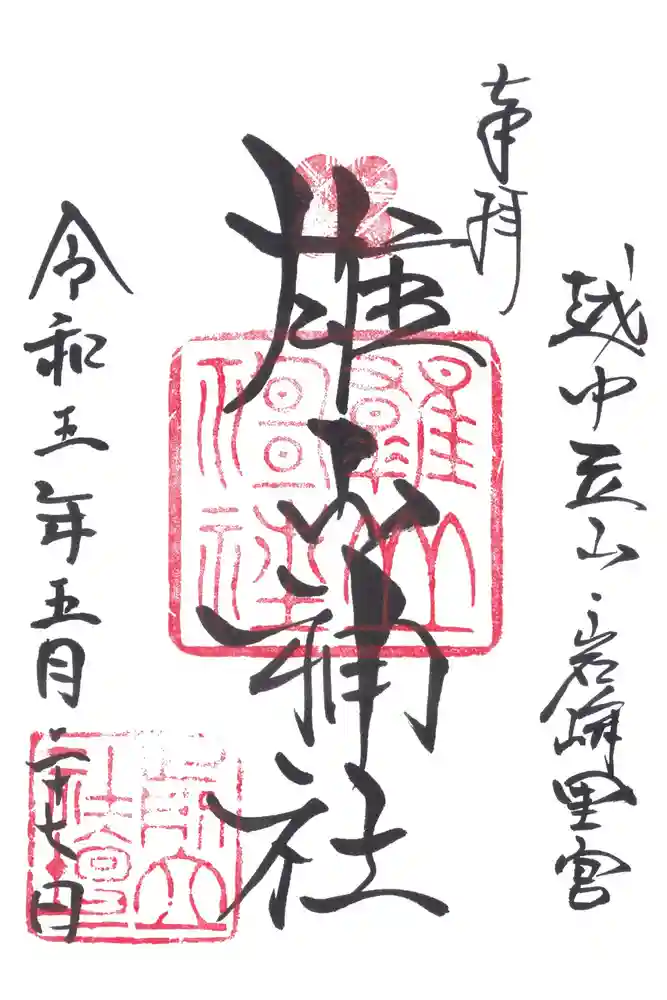 奉拝
越中立山、岩峅里宮
雄山神社
令和五年五月二十七日
前立
社壇